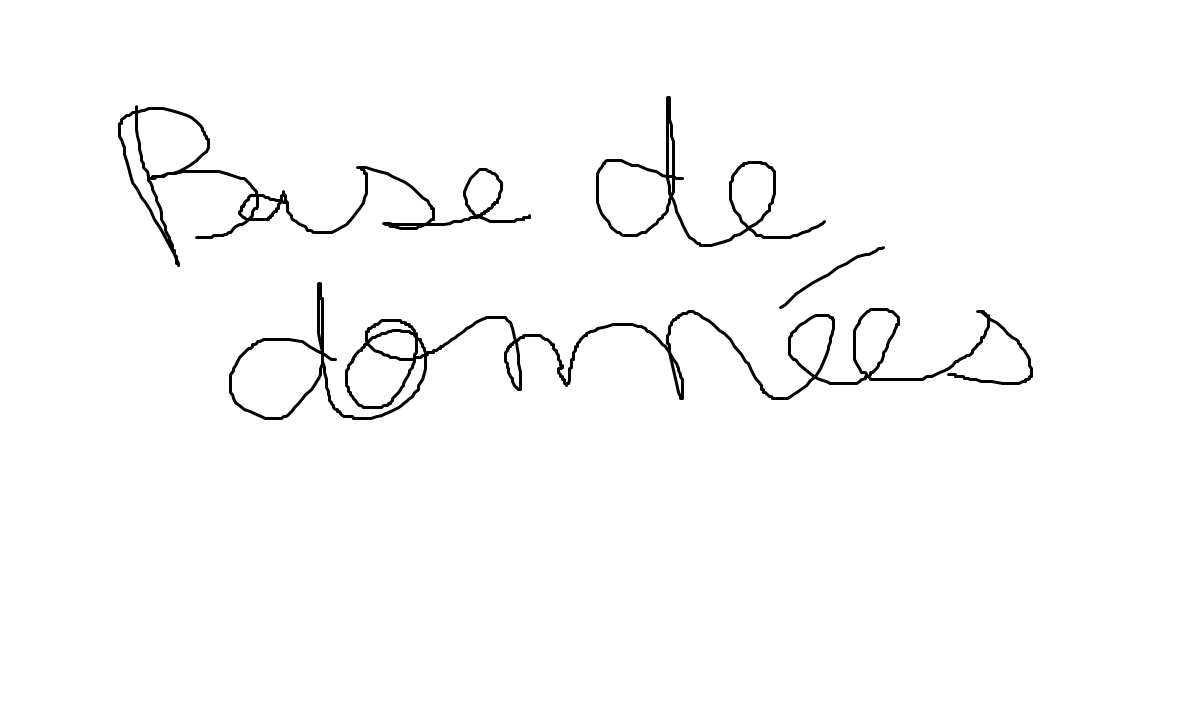 Base de
données